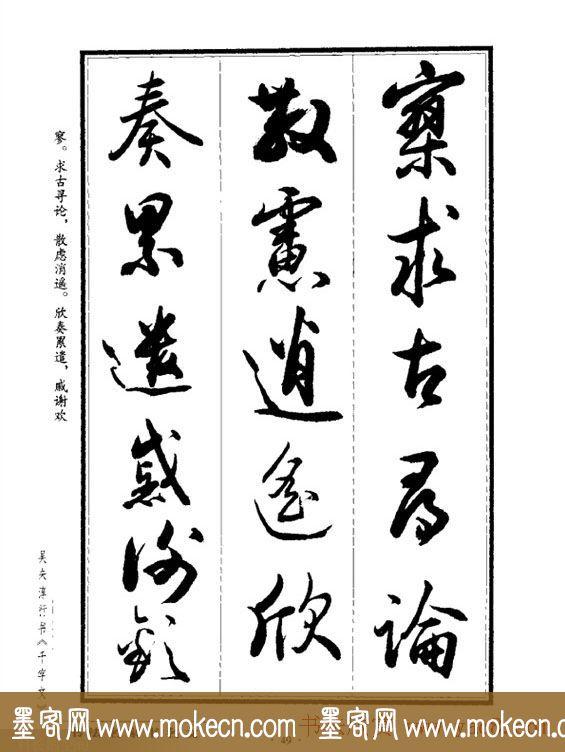 寥求古尋論
散慮逍遙欣
奏累遣慼謝歡
寥。求古寻论，散虑消遥。欣奏累遣，戚谢欢
行书《千字文》
墨客网 www.mokecn.com 墨客网 www.mokecn.com
49